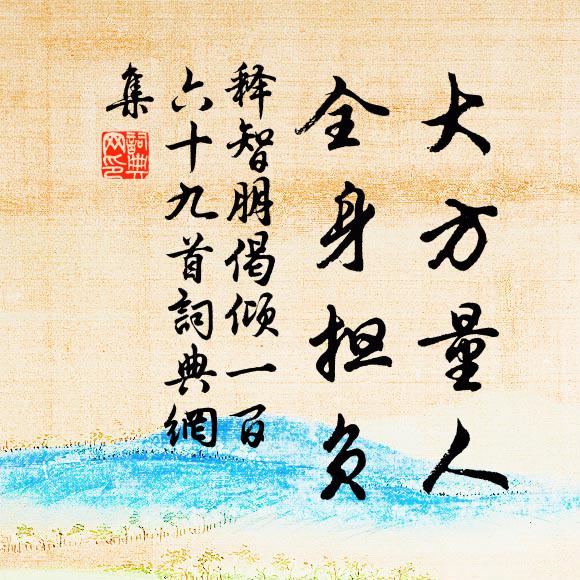 大方量人
全身担负
释智朋偈倾一百
六十九首詞典網
集
詞典網印